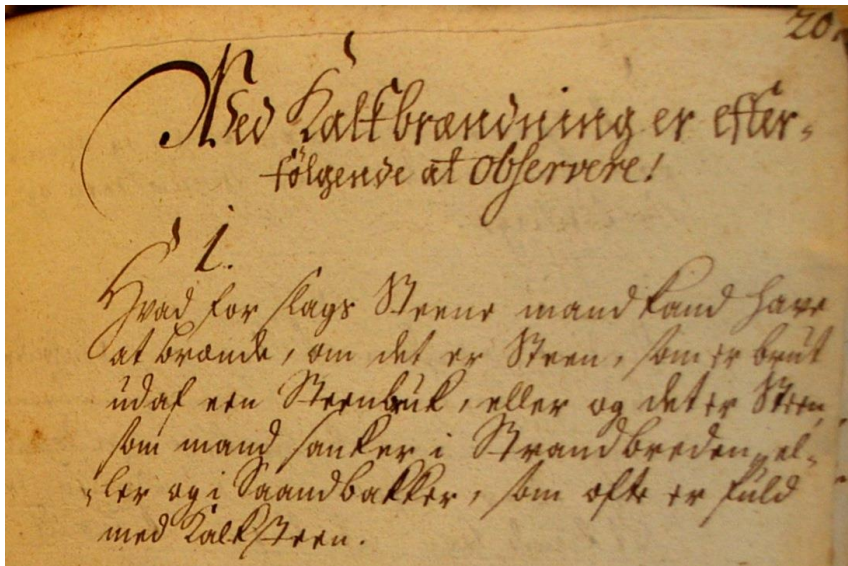 20.
Ved Kalkbrændning er efter-
følgende at observere!
1.
Hvad for slags Steene mand kand have
at brænde, om det er Steen, som er brut
udaf een Steenbruk, eller og det er Steen,
som mand sanker i Strandbreden, el-
ler og i Saandbakker, som ofte er fuld
med Kalksteen.